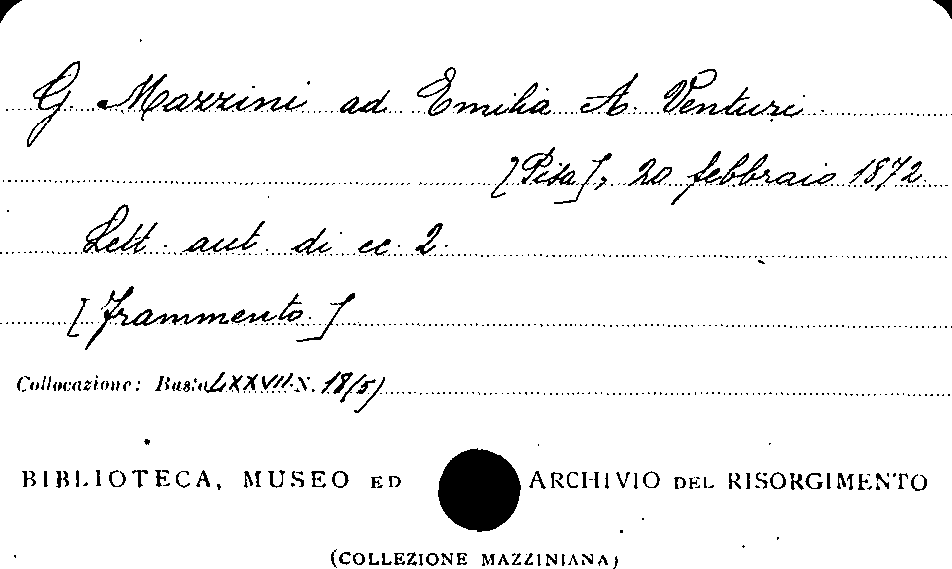 G. Mazzini ad Emilia A. Venturi
[Pisa], 20 febbraio 1872
Lett. aut. di cc. 2.
[Frammento]
Collocazione: Busta LXXVII N. 18(5)
BIBLIOTECA, MUSEO ED ARCHIVIO DEL RISORGIMENTO
(COLLEZIONE MAZZINIANA)